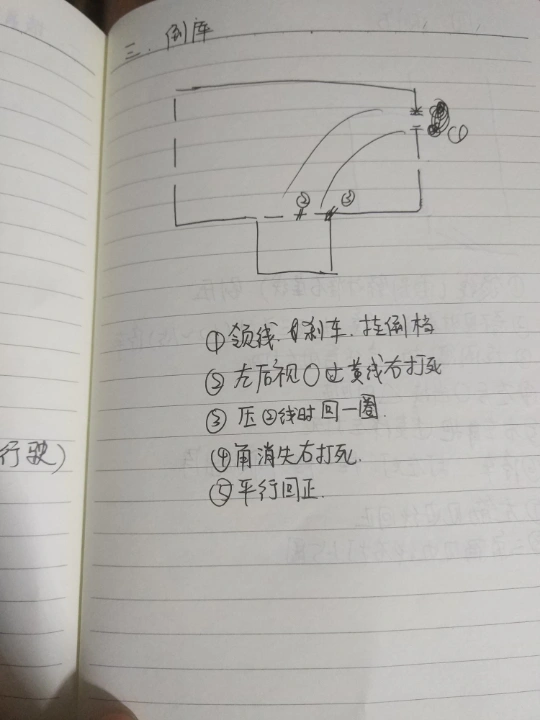 三.倒库
①
②
③
①领线,刹车.挂倒档
②左后视〇过黄线右打死
③压②线时回一圈.
④角消失右打死.
⑤平行回正.
行驶)